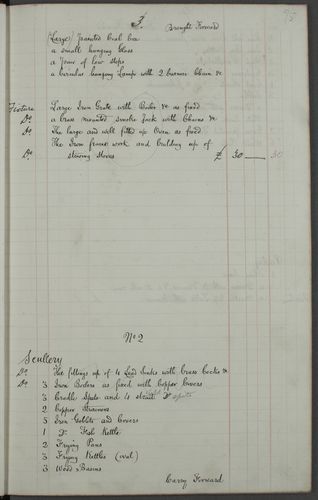 3.
Brought Forward
Large painted Coal Box
a small hanging Glass
a pair of low steps
a circular hanging Lamp with 2 burners Chain &c
Fixture Large Iron Grate with Boiler &c as fixed
Do. a Brass mounted smoke Jack with Chains &c
Do. The large and well fitted up Oven as fixed
Do. The Iron frame work and building up of
stewing Stoves £ 30 — 30
No 2
Scullery
Do. The fittings up of 4 Lead Sinks with Brass Cocks &c
Do. 3 Iron Boilers as fixed with Copper Covers
3 Cradle Spits and 4 strait Do
2 Copper Strainers
5 Iron Gobblets and Covers
1 Do Fish Kettle
2 Frying Pans
3 Frying Kettles (oval)
3 Wood Basins
Carry Forward